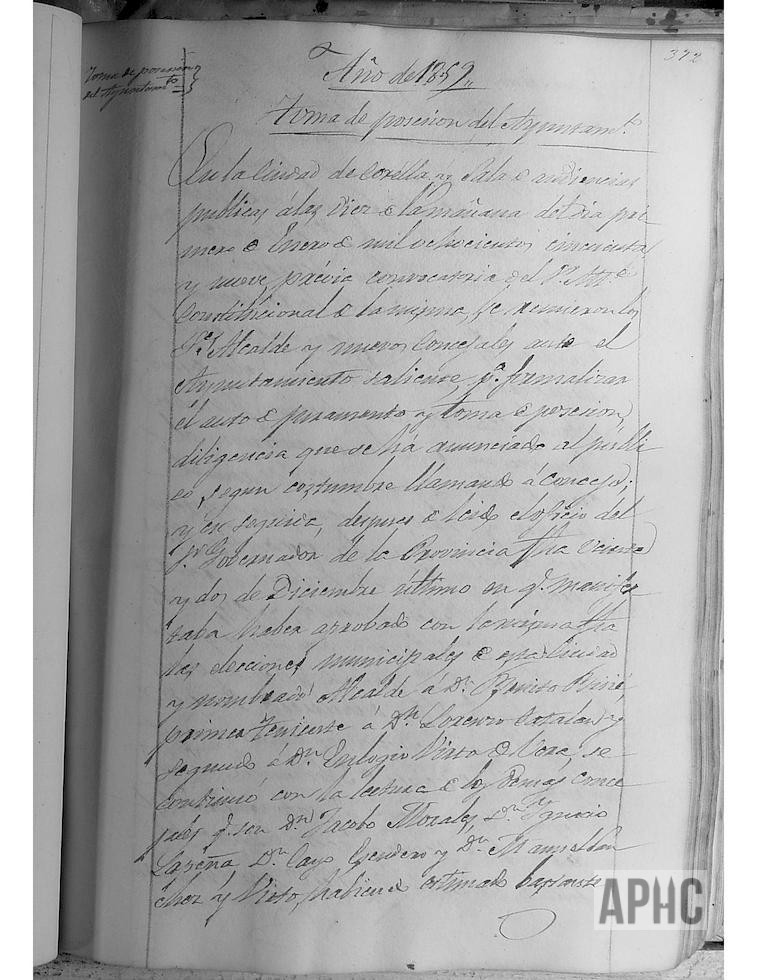 372
Toma de posesion
del Ayuntamto
Año de 1859,,
Toma de posesion del Ayuntamto
En la Ciudad de Corella y Sala de audiencias
publicas á las Diez de la mañana del dia pri-
mero de Enero de mil ochocientos cincuenta
y nueve, prévia convocatoria del Sr Alce
Constitucional de la misma, se reunieron los
Srs Alcalde y nuevos Concejales ante el
Ayuntamiento saliente pa formalizar
el auto de juramento y toma de posesion,
diligencia que se há anunciado al públi
co segun costumbre llamando á Concejo;
y en seguida, despues de leido el oficio del
Sr Gobernador de la Provincia fha veinte
y dos de Diciembre último en q. manifes
taba haber aprobado con la misma fha
las elecciones municipales de esta Ciudad
y nombrado Alcalde á Dn Benito
primer teniente á Dn Lorenzo Catalan y
segundo á Dn Eulogio Virto de Vera, se
continuó con la lectura de los demas conce
jales q. son Dn Jacobo Morales, Dn Ygnacio
Laseña Dn Cayo y Dn Manuel San
chez y Virto, habiendo estimado bastante
APHC